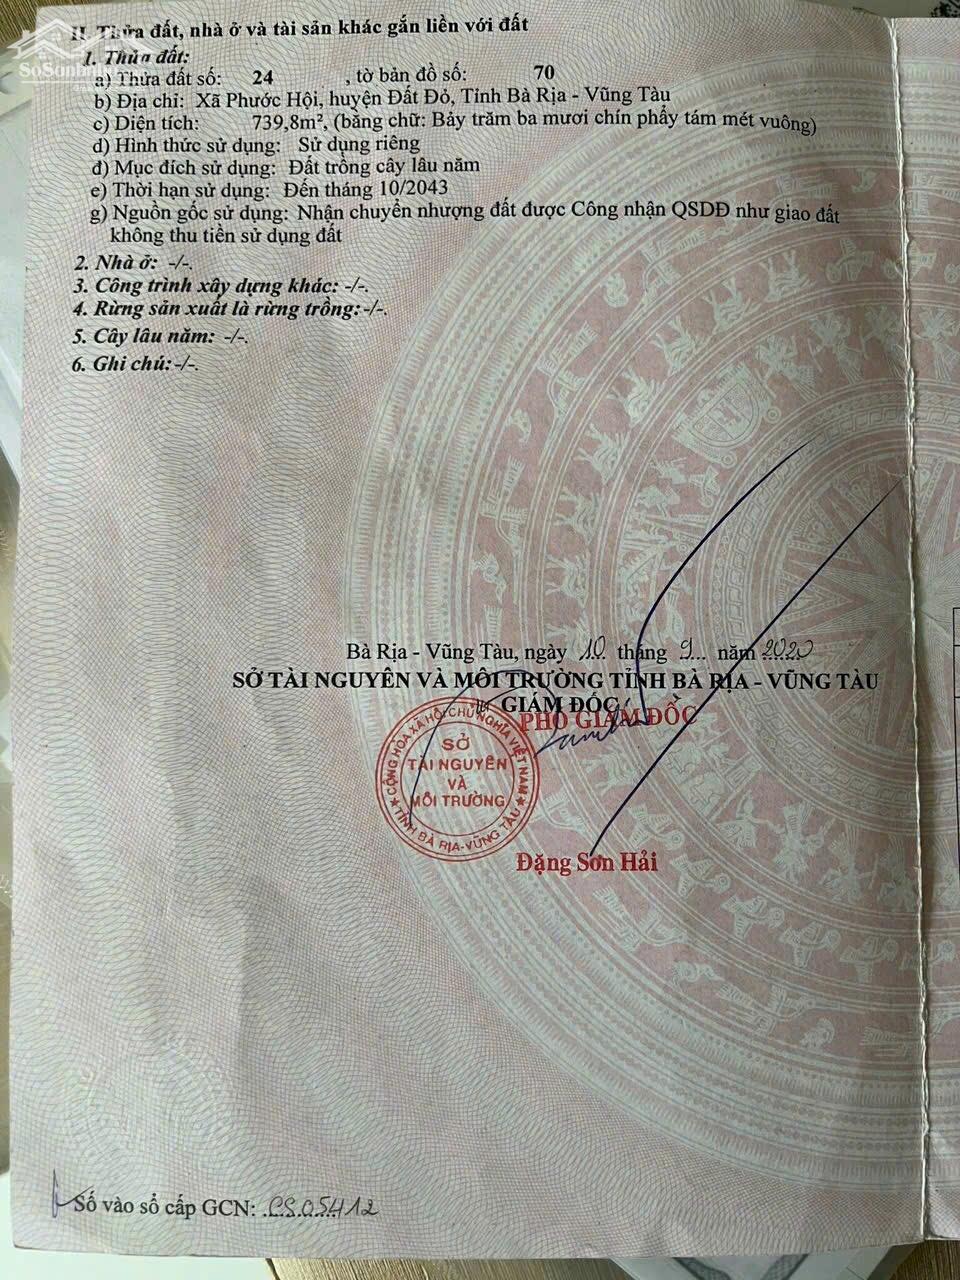 II. Thửa đất, nhà ở và tài sản khác gắn liền với đất
1. Thửa đất:
a) Thửa đất số: 24 , tờ bản đồ số: 70
b) Địa chỉ: Xã Phước Hội, huyện Đất Đỏ, Tỉnh Bà Rịa - Vũng Tàu
c) Diện tích: 739,8m², (bằng chữ: Bảy trăm ba mươi chín phẩy tám mét vuông)
d) Hình thức sử dụng: Sử dụng riêng
đ) Mục đích sử dụng: Đất trồng cây lâu năm
e) Thời hạn sử dụng: Đến tháng 10/2043
g) Nguồn gốc sử dụng: Nhận chuyển nhượng đất được Công nhận QSDĐ như giao đất
không thu tiền sử dụng đất
2. Nhà ở: -/-.
3. Công trình xây dựng khác: -/-.
4. Rừng sản xuất là rừng trồng: -/-.
5. Cây lâu năm: -/-.
6. Ghi chú: -/-.
Bà Rịa - Vũng Tàu, ngày 10 tháng 9 năm 2020
SỞ TÀI NGUYÊN VÀ MÔI TRƯỜNG TỈNH BÀ RỊA - VŨNG TÀU
GIÁM ĐỐC
PHÓ GIÁM ĐỐC
CỘNG HÒA XÃ HỘI CHỦ NGHĨA VIỆT NAM
SỞ
TÀI NGUYÊN
VÀ
MÔI TRƯỜNG
TỈNH BÀ RỊA-VŨNG TÀU
Đặng Sơn Hải
Số vào sổ cấp GCN: CS05412